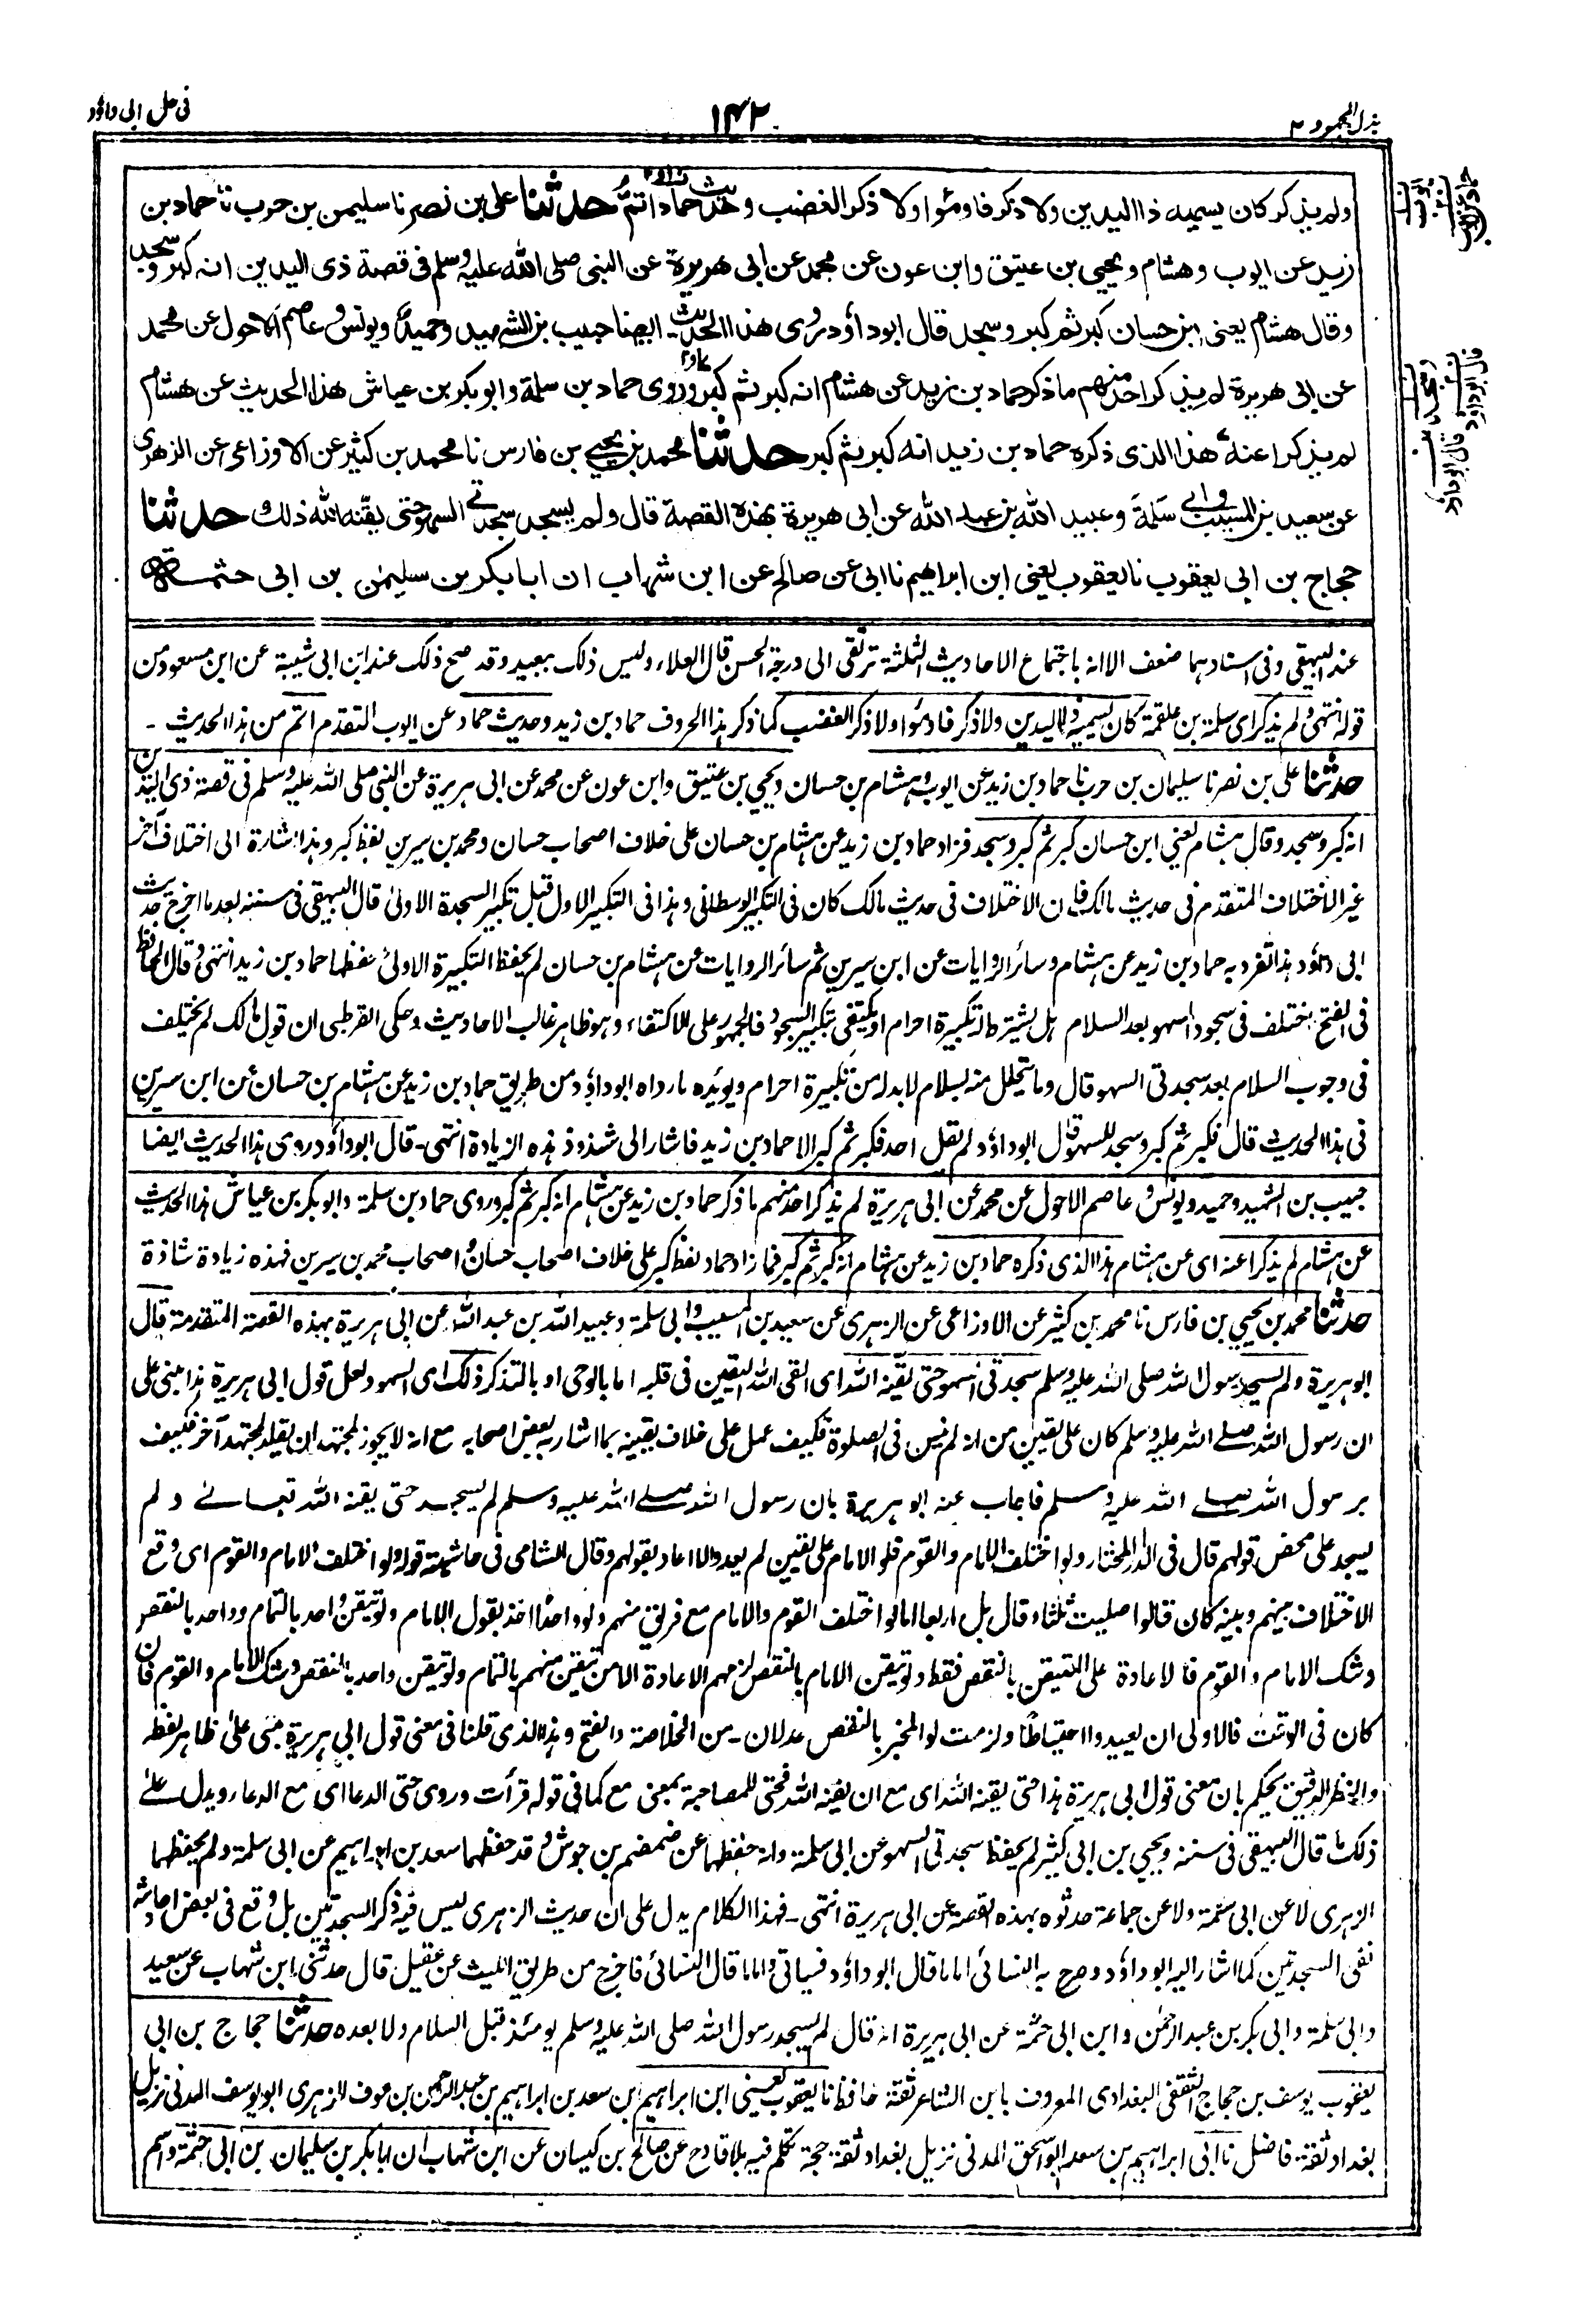 بذل المجهود ٢
١٤٢
فى حل ابى داؤد
ولم يذكر كان يسميه ذا اليدين ولا ذكر فاومئوا ولا ذكر الغضب وحديث حماد اتم حدثنا على بن نصر نا سليمن بن حرب نا حماد بن
زيد عن ايوب وهشام ويحيى بن عتيق وابن عون عن محمد عن ابى هريرة عن النبى صلى الله عليه وسلم فى قصة ذى اليدين انه كبر وسجد
وقال هشام يعنى ابن حسان كبر ثم كبر وسجد قال ابوداؤد روى هذا الحديث ايضا حبيب بن الشهيد وحميد ويونس وعاصم الاحول عن محمد
عن ابى هريرة لم يذكر احد منهم ما ذكر حماد بن زيد عن هشام انه كبر ثم كبر وروى حماد بن سلمة وابو بكر بن عياش هذا الحديث عن هشام
لم يذكرا عنه هذا الذى ذكره حماد بن زيد انه كبر ثم كبر حدثنا محمد بن يحيى بن فارس نا محمد بن كثير عن الاوزاعى عن الزهرى
عن سعيد بن المسيب وابى سلمة وعبيد الله بن عبد الله عن ابى هريرة بهذه القصة قال ولم يسجد سجدتى السهو حتى يقنه الله ذلك حدثنا
حجاج بن ابى يعقوب نا يعقوب يعنى ابن ابراهيم نا ابى عن صالح عن ابن شهاب ان ابا بكر بن سليمن بن ابى حثمة
عند البيهقى وفى اسنادهما ضعف الا انه باجتماع الاحاديث الثلثة ترتقى الى درجة الحسن قال العلاء وليس ذلك ببعيد وقد صح ذلك عند ابن ابى شيبة عن ابن مسعود من
قوله انتهى ولم يذكر اى سلمة بن علقمة كان يسميه ذا اليدين ولا ذكر فاومئوا ولا ذكر الغضب كما ذكر هذا الحروف حماد بن زيد وحديث حماد عن ايوب المتقدم اتم من هذا الحديث ـ
حدثنا على بن نصر نا سليمان بن حرب نا حماد بن زيد عن ايوب وهشام بن حسان ويحيى بن عتيق وابن عون عن محمد عن ابى هريرة عن النبى صلى الله عليه وسلم فى قصة ذى اليدين
انه كبر وسجد وقال هشام يعنى ابن حسان كبر ثم كبر وسجد فزاد حماد بن زيد عن هشام بن حسان على خلاف اصحاب حسان ومحمد بن سيرين لفظ كبر وهذا اشارة الى اختلاف آخر
غير الاختلاف المتقدم فى حديث مالك فان الاختلاف فى حديث مالك كان فى التكبير الوسطانى وهذا فى التكبير الاول قبل تكبير السجدة الاولى قال البيهقى فى سننه بعد ما اخرج حديث
ابى داؤد هذا تفرد به حماد بن زيد عن هشام وسائر الروايات عن ابن سيرين ثم سائر الروايات عن هشام بن حسان لم يحفظ التكبيرة الاولى حفظها حماد بن زيد انتهى وقال الحافظ
فى الفتح اختلف فى سجود السهو بعد السلام هل يشترط له تكبيرة احرام او يكتفى بتكبير السجود فالجمهور على الاكتفاء وهو ظاهر غالب الاحاديث وحكى القرطبى ان قول مالك لم يختلف
فى وجوب السلام بعد سجدتى السهو قال وما يتحلل منه بسلام لا بد له من تكبيرة احرام ويؤيده ما رواه ابو داؤد من طريق حماد بن زيد عن هشام بن حسان عن ابن سيرين
فى هذا الحديث قال فكبر ثم كبر وسجد للسهو قال ابو داؤد لم يقل احد فكبر ثم كبر الا حماد بن زيد فاشار الى شذوذ هذه الزيادة انتهى ـ قال ابو داؤد روى هذا الحديث ايضا
حبيب بن الشهيد وحميد ويونس وعاصم الاحول عن محمد عن ابى هريرة لم يذكر احد منهم ما ذكر حماد بن زيد عن هشام انه كبر ثم كبر وروى حماد بن سلمة وابو بكر بن عياش هذا الحديث
عن هشام لم يذكرا عنه اى عن هشام هذا الذى ذكره حماد بن زيد عن هشام انه كبر ثم كبر فما زاد حماد لفظ كبر على خلاف اصحاب حسان و اصحاب محمد بن سيرين فهذه زيادة شاذة
حدثنا محمد بن يحيى بن فارس نا محمد بن كثير عن الاوزاعى عن الزهرى عن سعيد بن المسيب وابى سلمة وعبيد الله بن عبد الله عن ابى هريرة بهذه القصة المتقدمة قال
ابو هريرة ولم يسجد رسول الله صلى الله عليه وسلم سجدتى السهو حتى يقنه الله اى القى الله اليقين فى قلبه اما بالوحى او بالتذكر ذلك اى السهو ولعل قول ابى هريرة هذا مبنى على
ان رسول الله صلى الله عليه وسلم كان على يقين من انه لم ينس فى الصلوة فكيف عمل على خلاف يقينه بما اشار به بعض اصحابه مع انه لا يجوز لمجتهد ان يقلد لمجتهد آخر فكيف
برسول الله صلى الله عليه وسلم فاجاب عنه ابو هريرة بان رسول الله صلى الله عليه وسلم لم يسجد حتى يقنه الله تعالى ولم
يسجد على محض قولهم قال فى الدر المختار ولو اختلف الامام والقوم فلو الامام على يقين لم يعد والا اعاد بقولهم وقال الشامى فى حاشيته قوله ولو اختلف الامام والقوم اى وقع
الاختلاف بينهم وبينه كان قالوا صليت ثلثاء قال بل اربعا اما لو اختلف القوم والامام مع فريق منهم ولو واحدا اخذ بقول الامام ولو تيقن واحد بالتمام وواحد بالنقص
وشك الامام والقوم فالاعادة على المتيقن بالنقص فقط ولو تيقن الامام بالنقص لزمهم الاعادة الا من تيقن منهم بالتمام ولو تيقن واحد بالنقص وشك الامام والقوم فان
كان فى الوقت فالاولى ان يعيدوا احتياطا ولزمت لو المخبر بالنقص عدلان ـ من الخلاصة والفتح وهذا الذى قلنا فى معنى قول ابى هريرة مبنى على ظاهر لفظه
والنظر الدقيق يحكم بان معنى قول ابى هريرة هذا حتى يقنه الله اى مع ان يقنه الله فحتى للمصاحبة بمعنى مع كما فى قوله قرأت وروى حتى الدعا اى مع الدعاء ويدل على
ذلك ما قال البيهقى فى سننه ويحيى بن ابى كثير لم يحفظ سجدتى السهو عن ابى سلمة وانه حفظها عن ضمضم بن جوش وقد حفظهما سعد بن ابراهيم عن ابى سلمة ولم يحفظهما
الزهرى لا عن ابى سلمة ولا عن جماعة حدثوه بهذه القصة عن ابى هريرة انتهى ـ فهذا الكلام يدل على ان حديث الزهرى ليس فيه ذكر السجدتين بل وقع فى بعض احاديثه
نفى السجدتين كما اشار اليه ابو داؤد وصرح به النسائى اما ما قال ابو داؤد فسياتى واما ما قال النسائى فاخرج من طريق الليث عن عقيل قال حدثنى ابن شهاب عن سعيد
وابى سلمة وابى بكر بن عبد الرحمن وابن ابى حثمة عن ابى هريرة انه قال لم يسجد رسول الله صلى الله عليه وسلم يومئذ قبل السلام ولا بعده حدثنا حجاج بن ابى
يعقوب يوسف بن حجاج الثقفى البغدادى المعروف بابن الشاعر ثقة حافظ نا يعقوب يعنى ابن ابراهيم بن سعد بن ابراهيم بن عبد الرحمن بن عوف الزهرى ابو يوسف المدنى نزيل
بغداد ثقة فاضل نا ابى ابراهيم بن سعد ابو اسحق المدنى نزيل بغداد ثقة حجة تكلم فيه بلا قادح عن صالح بن كيسان عن ابن شهاب ان ابا بكر بن سليمان بن ابى حثمة واسم
قال ابو داود
قال ابو داؤد